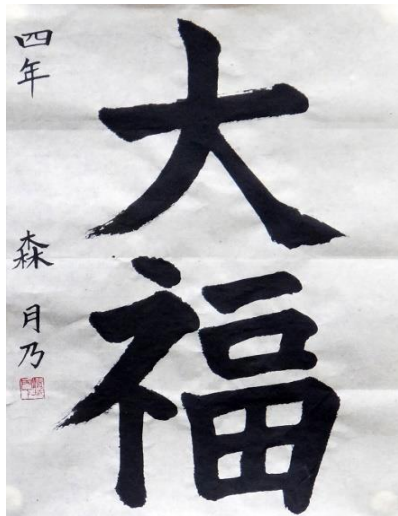 大福
四年 森月乃